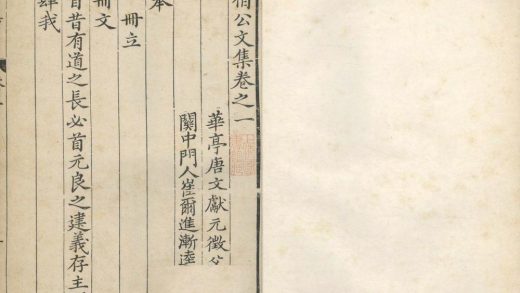 公文集卷之一
華亭唐文獻元徵父
關中門人崔爾進漸逵
本
冊立
冊文
自昔有道之長必首元良之建義存主
肆我